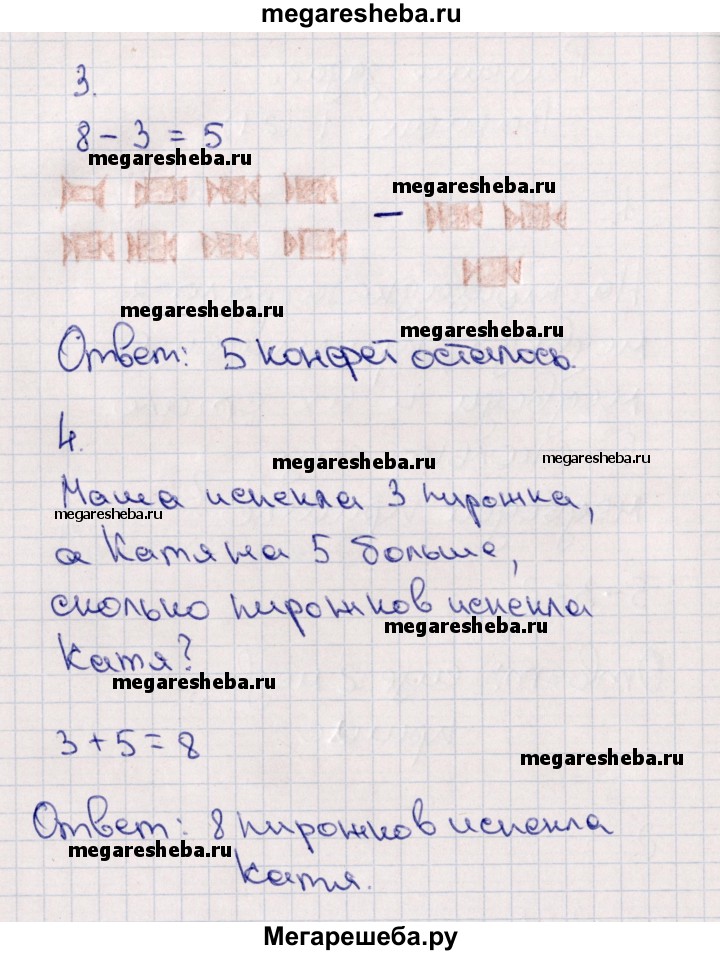 megaresheba.ru
3.
8 - 3 = 5
megaresheba.ru
megaresheba.ru
-
megaresheba.ru
megaresheba.ru
Ответ: 5 конфет осталось.
4.
megaresheba.ru
megaresheba.ru
Маша испекла 3 пирожка,
megaresheba.ru
а Катя на 5 больше,
сколько пирожков испекла
megaresheba.ru
Катя?
megaresheba.ru
3 + 5 = 8
megaresheba.ru
Ответ: 8 пирожков испекла
megaresheba.ru
Катя.
Мегарешеба.ру